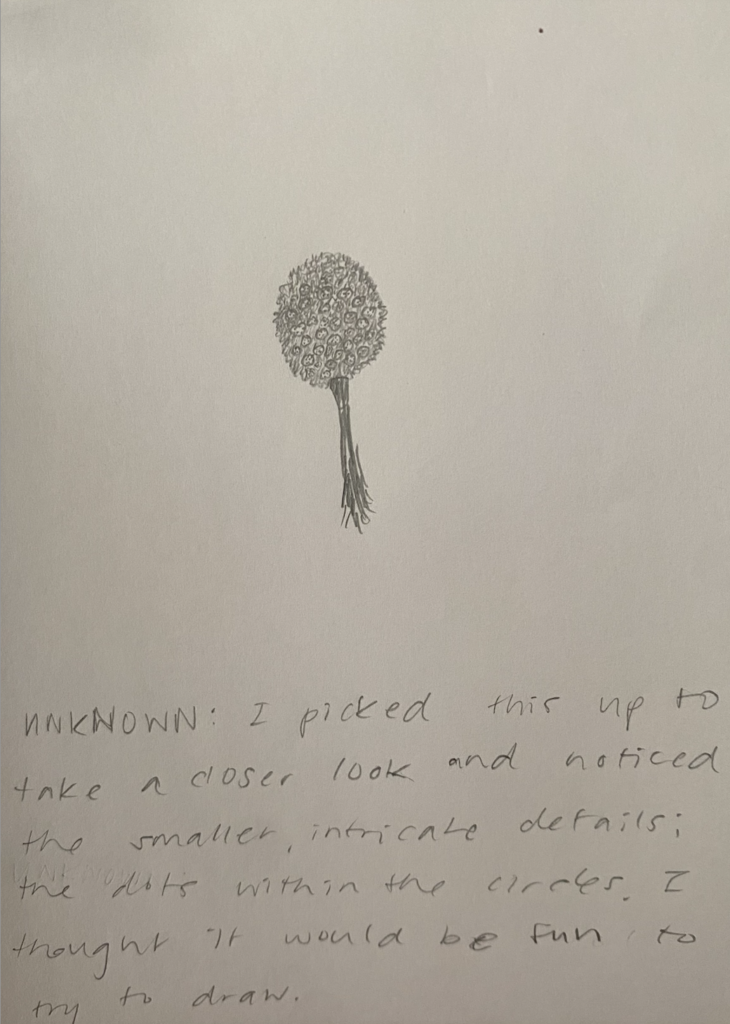 UNKNOWN: I picked this up to
take a closer look and noticed
the smaller, intricate details;
the dots within the circles. I
thought it would be fun to
try to draw.